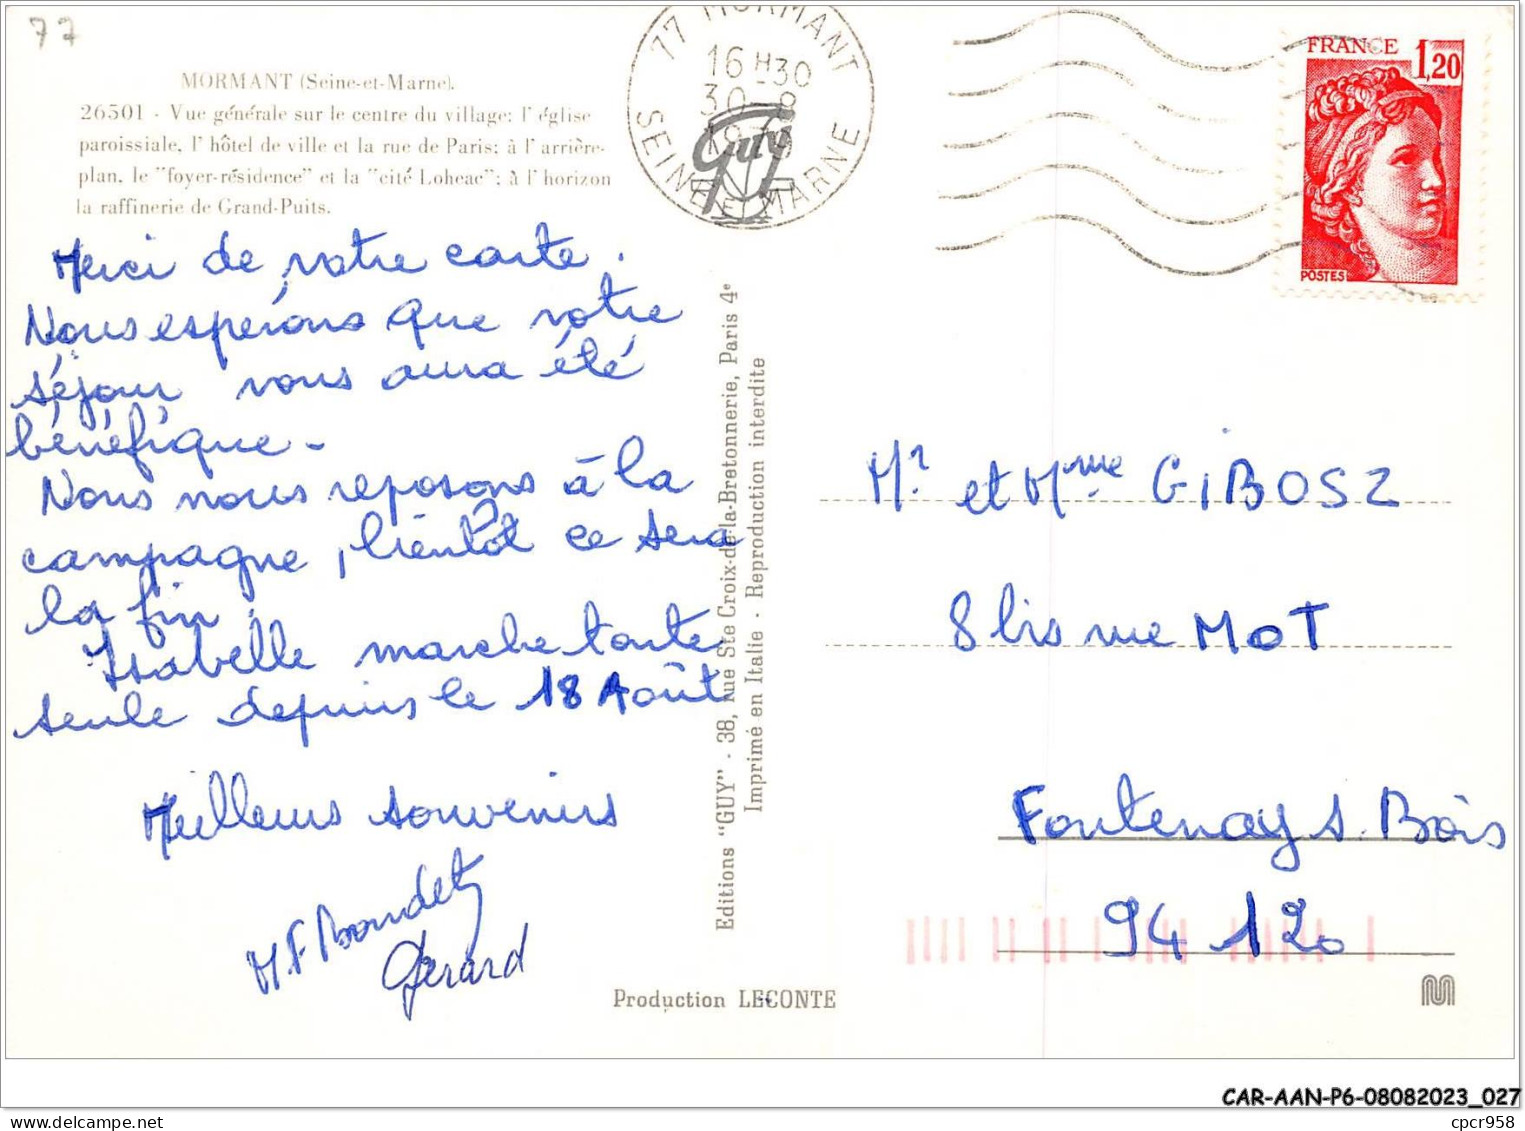 77
MORMANT (Seine-et-Marne).
26501 - Vue générale sur le centre du village: l'église
paroissiale, l'hôtel de ville et la rue de Paris; à l'arrière-
plan, le "foyer-résidence" et la "cité Loheac"; à l'horizon
la raffinerie de Grand-Puits.
77 MORMANT
16 H 30
30-8
1979
SEINE ET MARNE
Guy
FRANCE
1,20
POSTES
Merci de votre carte.
Nous espérons que votre
séjour vous aura été
bénéfique -
Nous nous reposons à la
campagne, bientôt ce sera
la fin.
Isabelle marche toute
seule depuis le 18 Août
Meilleurs souvenirs
M F Boudet
Gérard
Editions "GUY" - 38, rue Ste Croix-de-la-Bretonnerie, Paris 4e
Imprimé en Italie - Reproduction interdite
Mr et Mme GIBOSZ
8 bis rue MOT
Fontenay s. Bois
94 120
Production LECONTE
CAR-AAN-P6-08082023_027
cpcr958